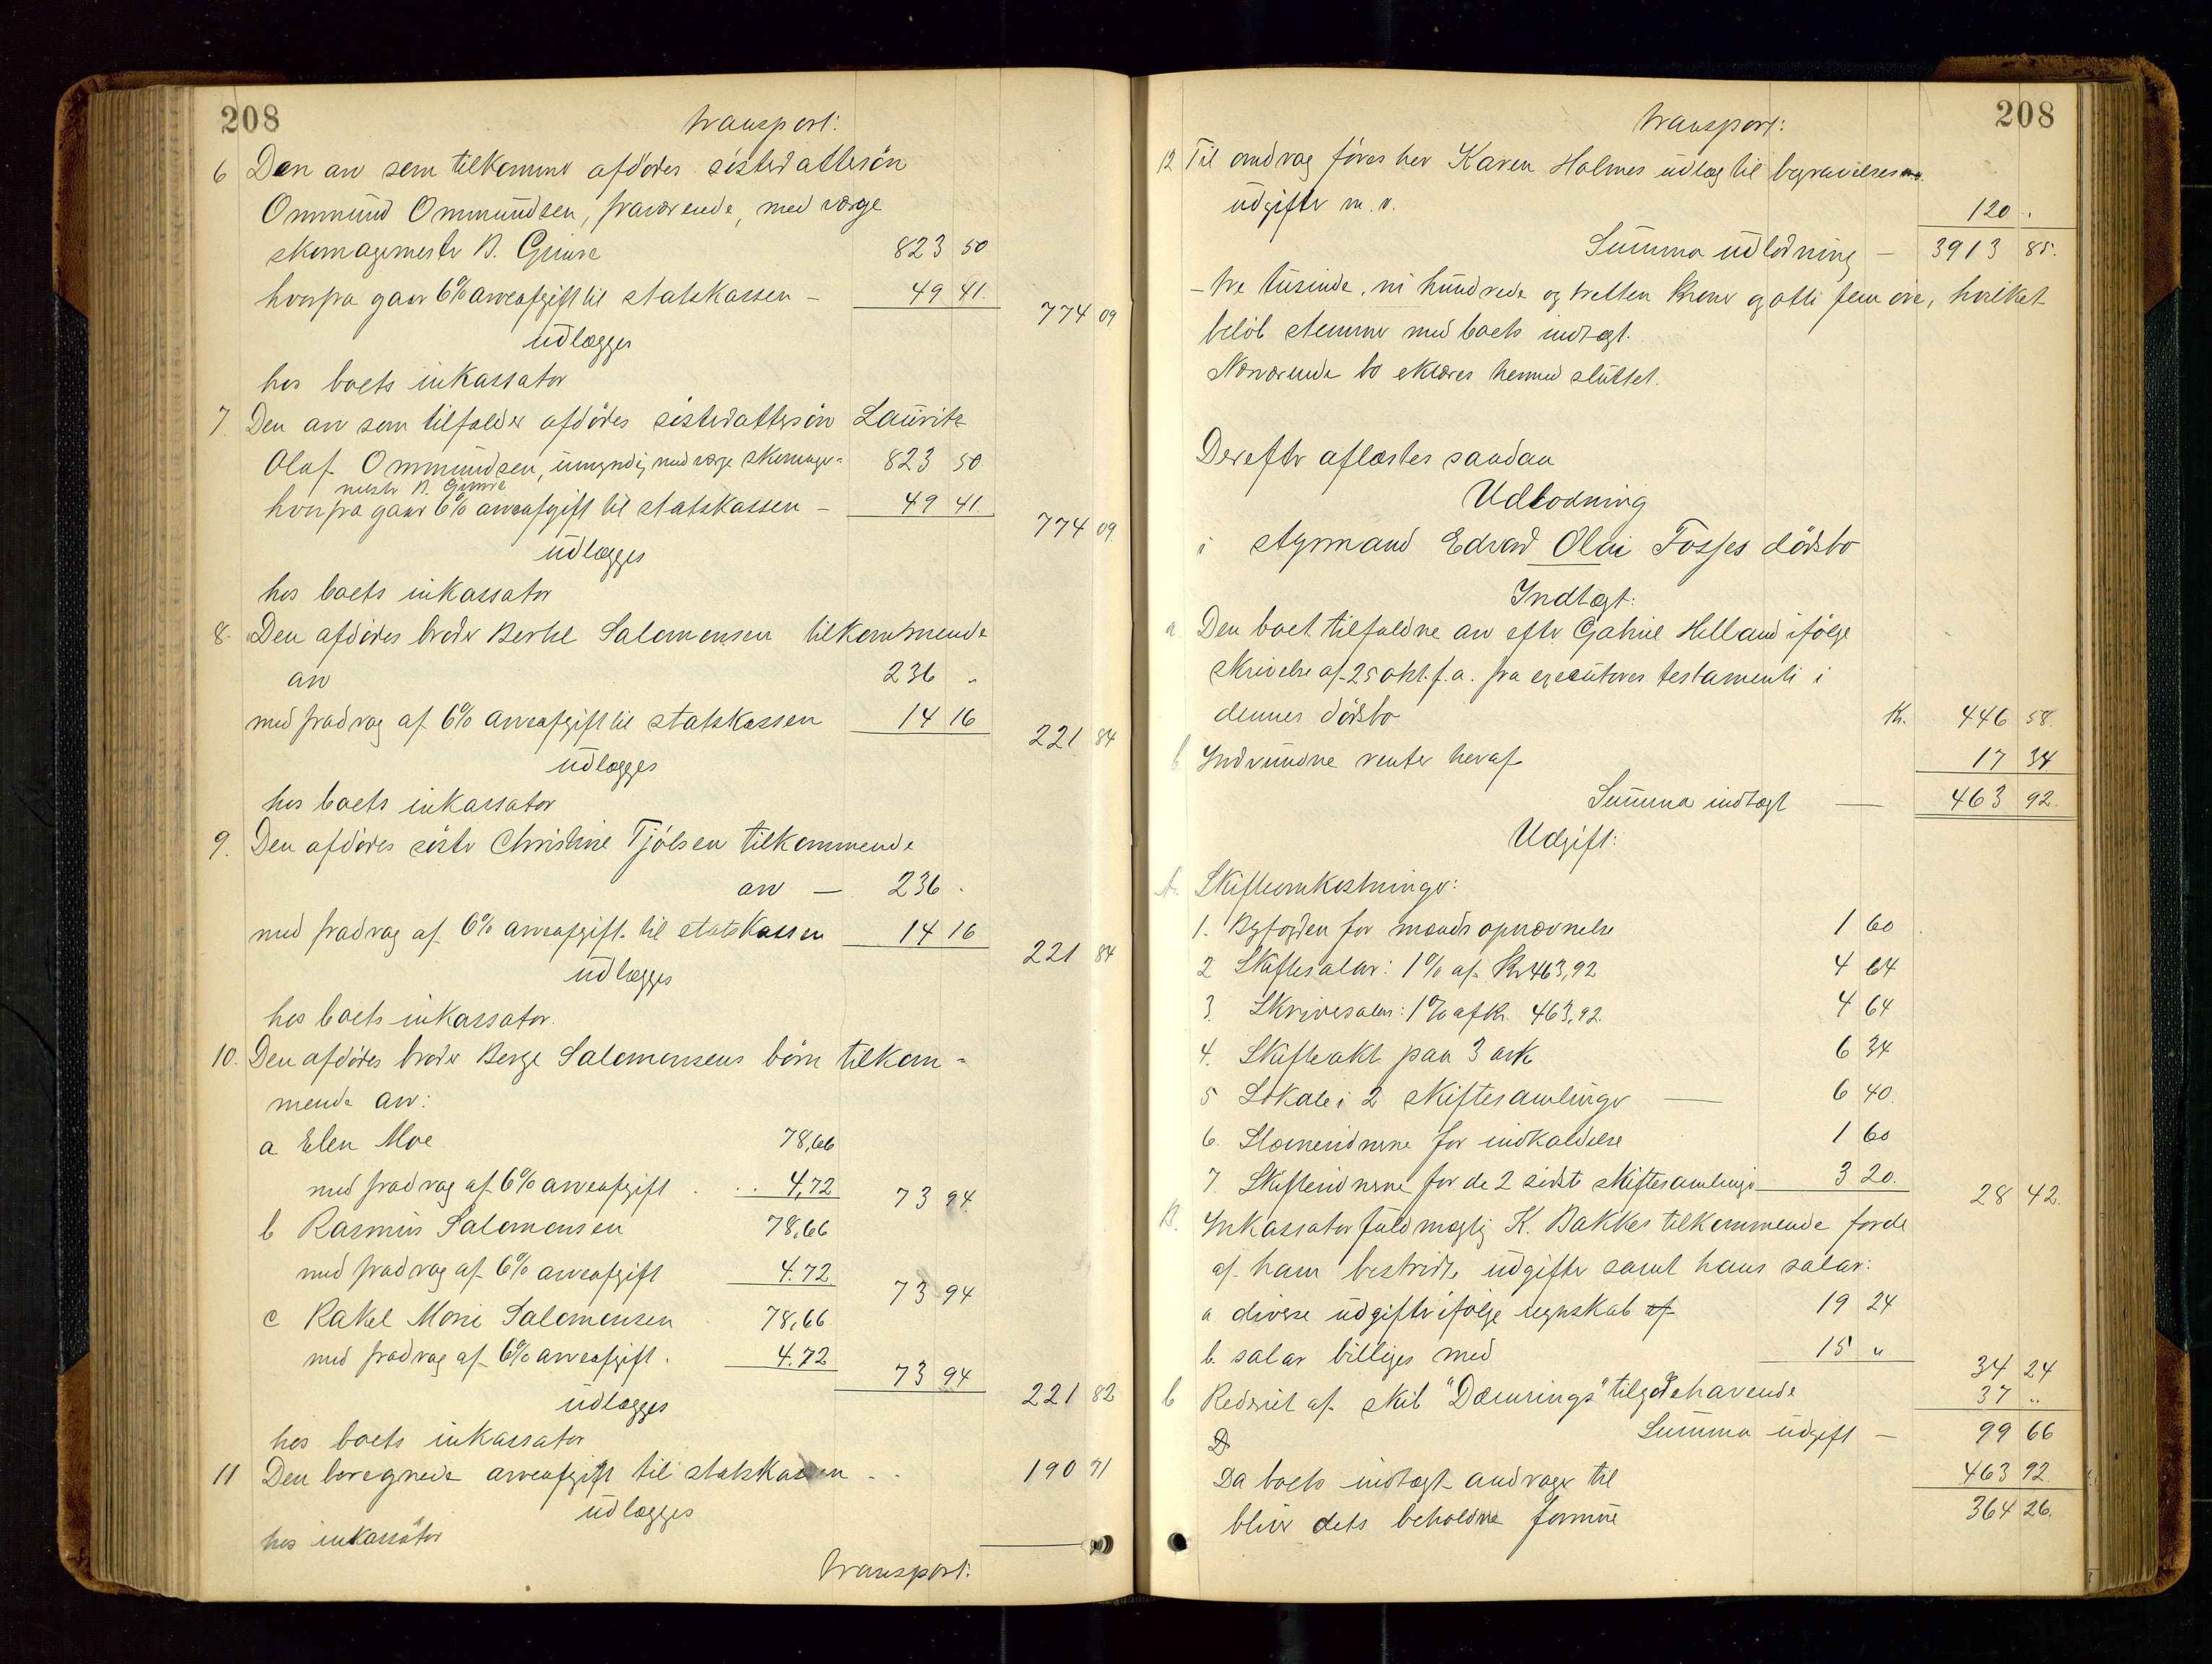 208
transport:
6 Den arv som tilkommer afdødes søsterdattersøn
Ommund Ommundsen, fraværende, med værge
skomagermester B. Grimre 823 50
hvorfra gaar 6% arveafgift til statskassen – 49 41. 774 09
udlægges
hos boets inkassator
7. Den arv som tilfalder afdødes søsterdattersøn Lauritz
Olaf Ommundsen, umyndig med værge skomager- 823 50.
mester B. Grimre
hvorfra gaar 6% arveafgift til statskassen – 49 41. 774 09
udlægges
hos boets inkassator
8. Den afdødes broder Bertel Salomonsen tilkommende
arv 236 "
med fradrag af 6% arveafgift til statskassen 14 16 221 84
udlægges
hos boets inkassator
9. Den afdødes søster Christine Tjølsen tilkommende
arv — 236 .
med fradrag af 6% arveafgift til statskassen 14 16 221 84
udlægges
hos boets inkassator.
10. Den afdødes broder Berge Salomonsens børn tilkom-
mende arv:
a Elen Moe 78,66
med fradrag af 6% arveafgift . . . 4,72 73 94
b Rasmus Salomonsen 78,66
med fradrag af 6% arveafgift 4.72 73 94
c Rakel Marie Salomonsen 78,66
med fradrag af 6% arveafgift . 4.72 73 94 221 82
udlægges
hos boets inkassator
11 Den beregnede arveafgift til statskassen . . 190 71
udlægges
hos inkassator
transport:
208
transport:
12 Til andrag føres her Karen Holmes udlæg til begravelses
udgifter m.v. 120 .
Summa udlodning – 3913 85.
– tre tusinde, ni hundrede og tretten kroner og otti fem øre, hvilket
beløb stemmer med boets indtægt.
Nærværende bo eklæres hermed sluttet.
Derefter aflæstes saadan
Udlodning
i styrmand Edvard Olai Fosses dødsbo
Indtægt:
a Den boet tilfaldne arv efter Gabriel Helland ifølge
skrivelse af 25 okt. f.a. fra executores testamenti i
dennes dødsbo Kr. 446 58.
b Indvundne renter heraf 17 34
Summa indtægt — 463 92.
Udgift:
A. Skifteomkostninger:
1. Byfogden for mænds opnævnelse 1 60
2 Skiftesalær: 1% af Kr 463,92 4 64
3. Skriversalær: 1% af Kr. 463,92. 4 64
4. Skifteakt paa 3 ark 6 34
5 Lokale i 2 skiftesamlinger — 6 40.
6. Stævnevidnerne for indkaldelse 1 60
7 Skiftevidnerne for de 2 sidste skiftesamlinger 3 20. 28 42.
B. Inkassator fuldmægtig K. Bakkes tilkommende for de
af ham bestridte udgifter samt hans salær:
a diverse udgifter ifølge regnskab af 19 24
b. salær billiges med 15 " 34 24
C Rederiet af skib "Dæmrings" tilgodehavende 37 "
D Summa udgift – 99 66
Da boets indtægt andrager til 463 92.
bliver dets beholdne formue 364 26.